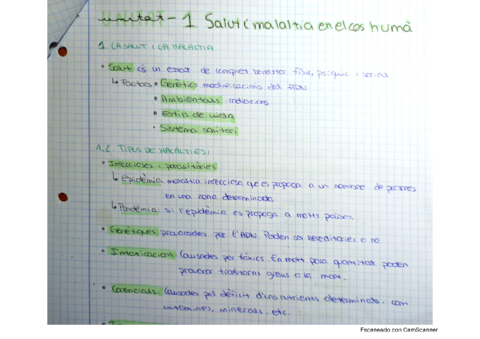 unitat-1 Salut i malaltia en el cos humà
1. LA SALUT I LA MALALTIA
• Salut és un estat de complet benestar físic, psíquic i social
↳ Factors • Genètic modificacions del ADN
• Ambientals radiacions
• Estils de vida
• Sistema sanitari
1.2 TIPUS DE MALALTIES:
• Infeccioses i parasitàries
↳ Epidèmia malaltia infecciosa que es propaga a un nombre de persones
en una zona determinada
↳ Pandèmia: si l'epidèmia es propaga a molts països.
• Genètiques provocades per l'ADN. Poden ser hereditàries o no
• Intoxicacions Causades per tòxics. En molt poca quantitat poden
provocar trastorns greus o la mort.
• Carencials. Causades pel dèficit d'uns nutrients determinats, com
vitamines, minerals, etc.
Escaneado con CamScanner